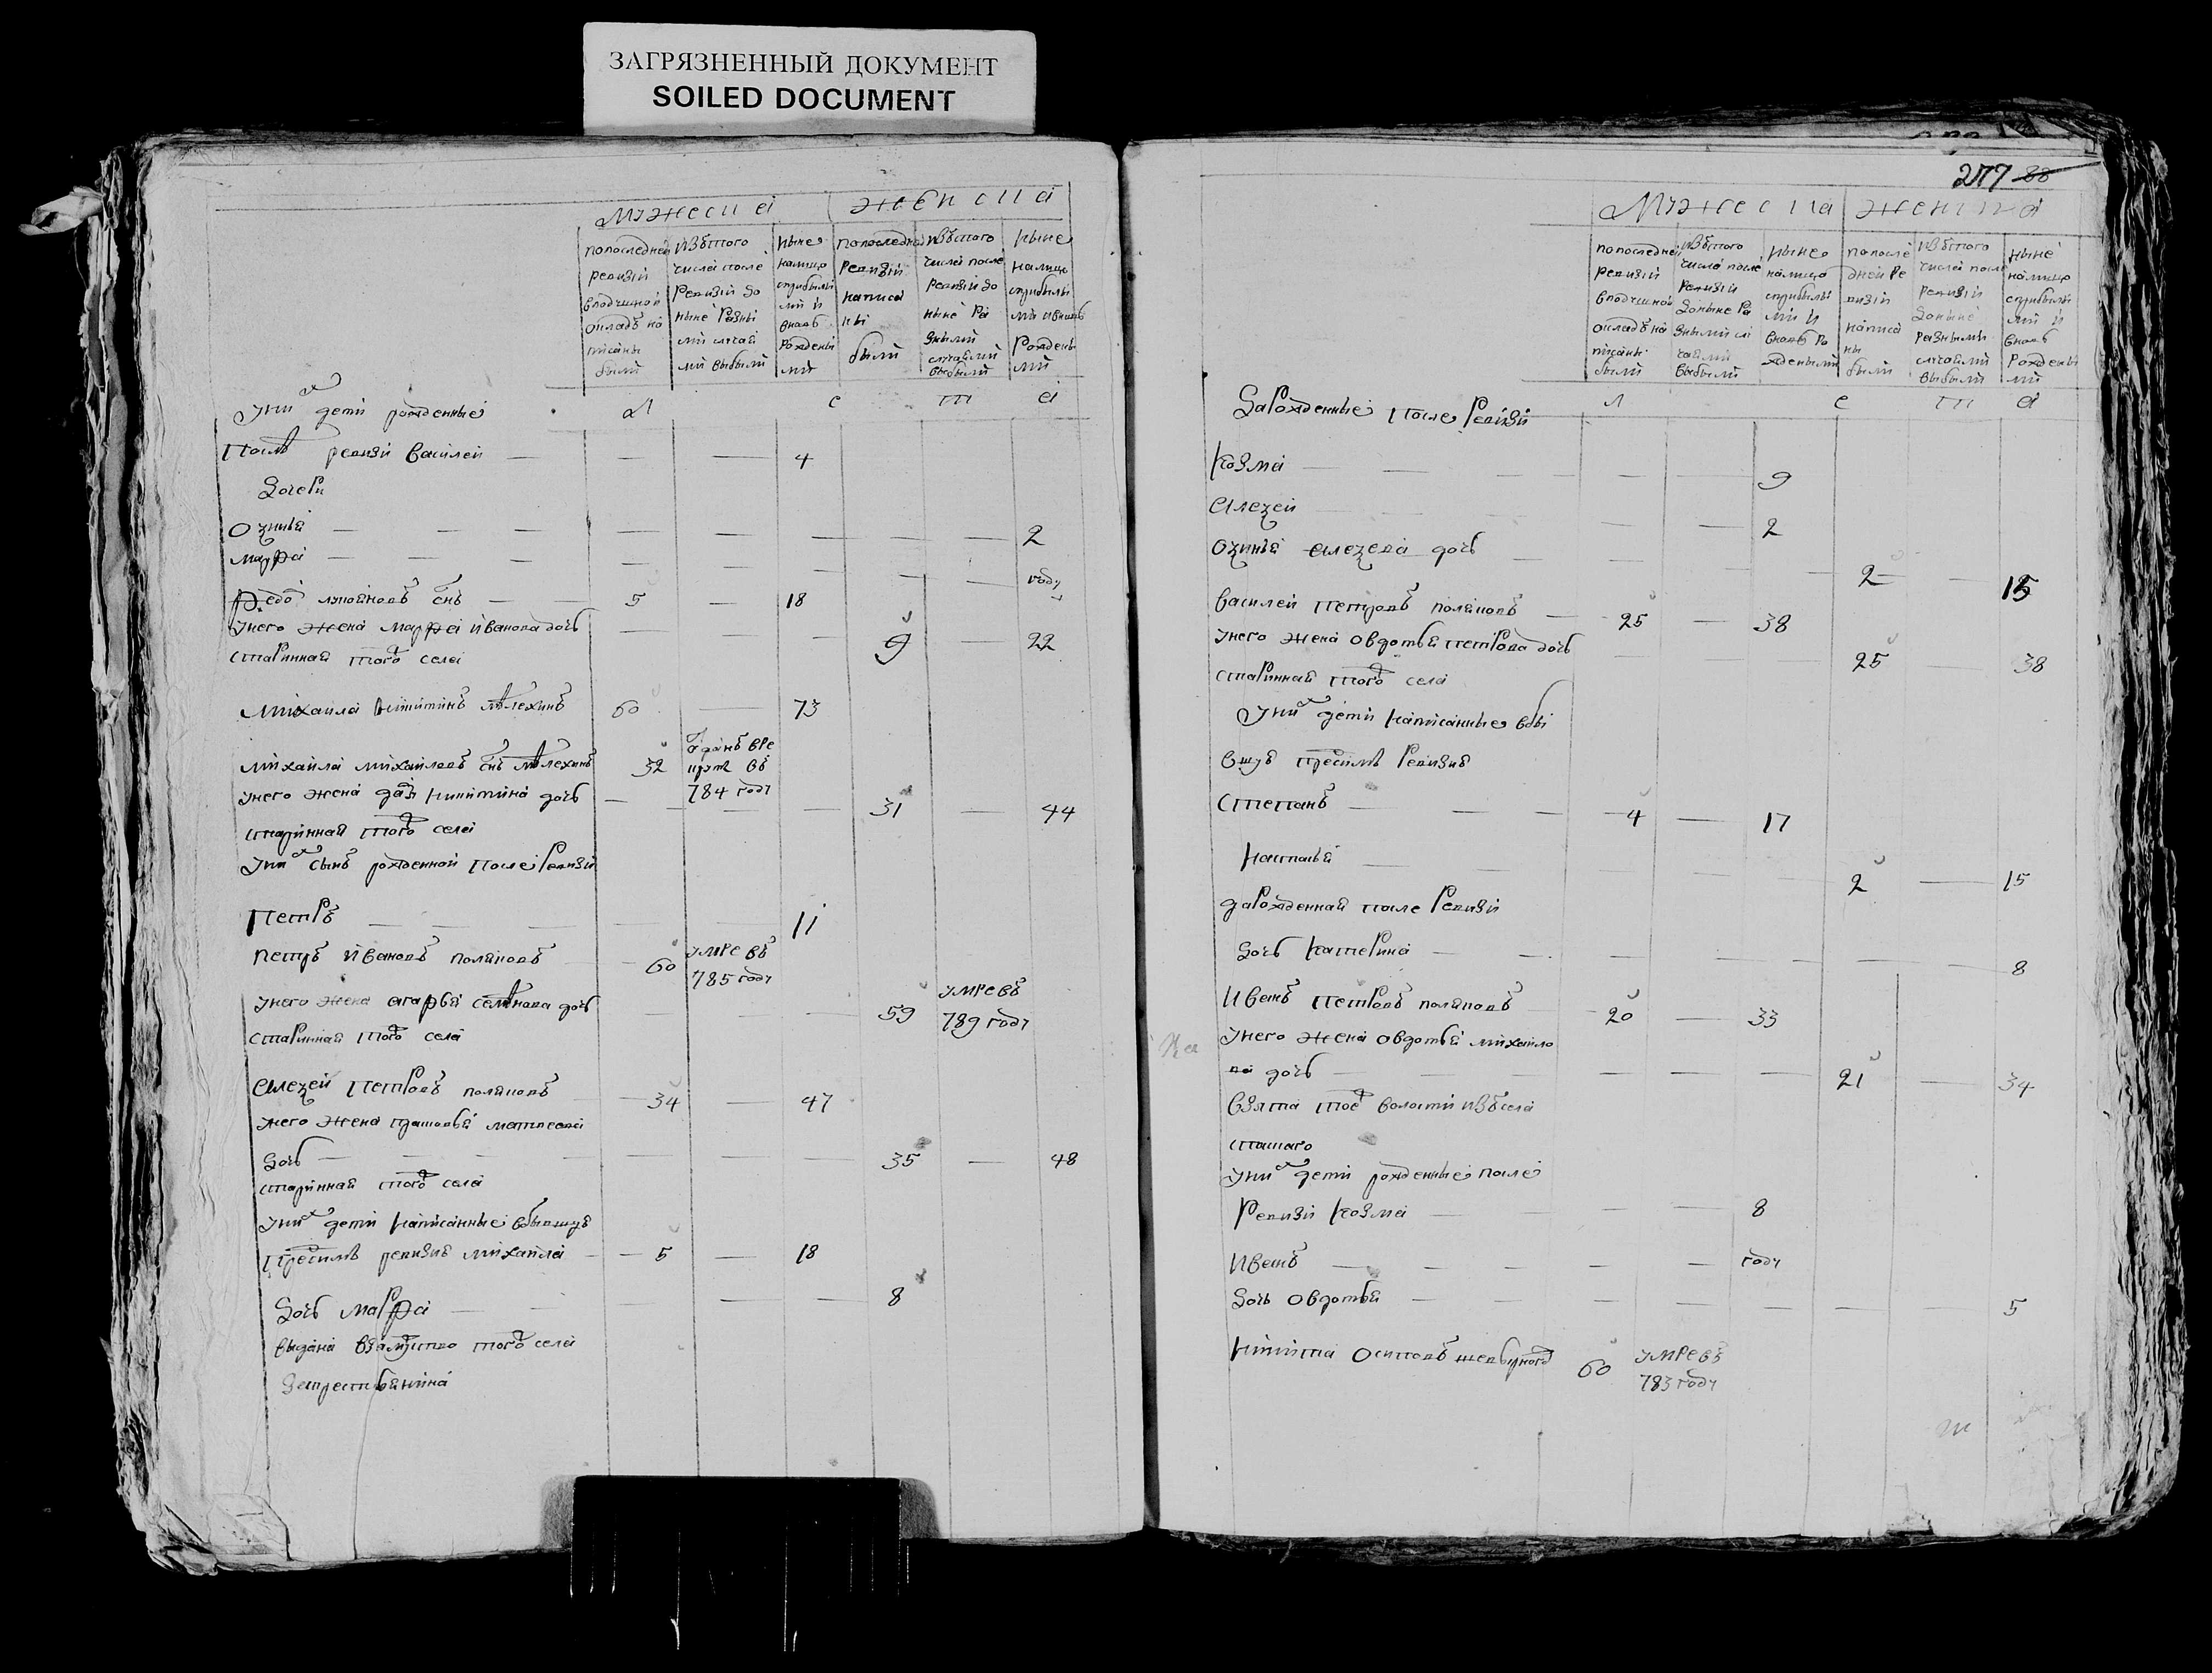 ЗАГРЯЗНЕННЫЙ ДОКУМЕНТ
SOILED DOCUMENT
мужеска женска
попоследней ревизии вподушной окладъ написаны были
изътого числа после ревизии до ныне разными случаями выбыли
ныне налицо сприбылыми и вновь рожденными
попоследней ревизии написаны были
изътого числа после ревизии до ныне разными случаями выбыли
ныне налицо сприбылыми ивновь рожденными
л е т а
уних дети рожденные
после ревизи василей — — — 4
дочери
— — — — — — — 2
марфа — — — — — — году
федо лупановъ снъ — 5 — 18
унего жена марфа иванова дочь — — — 9 — 22
старинная того села
михаила никитинъ 60 — 73
михаила михаиловъ снъ 32 отданъ вре круты въ 784 году
унего жена никитина дочь — — — 31 — 44
старинная того села
уних сынъ рожденной после ревизии
петръ — — — — 11
петръ ивановъ поляковъ — 60 умре въ 785 году
унего жена агафья семенова дочь — — — 59 умре въ 789 году
старинная того села
алеѯей петровъ поляковъ — 34 — 47
унего жена матвеева
дочь — — — — — — — 35 — 48
старинная того села
уних дети написанные вбывшую
пресимъ ревизию михаила — 5 — 18
дочь марфа — — — — 8
выдана взамужство того села
закрестьянина
277 88
мужеска женска
попоследней ревизии вподушной окладъ написаны были
изътого числа после ревизии доныне разными случаями выбыли
ныне налицо сприбылыми и вновь рожденными
попоследней ревизии написаны были
изътого числа после ревизии доныне разными случаями выбыли
ныне налицо сприбылыми и вновь рожденными
л е т а
дарожденные после ревизии
козма — — — — — 9
алеѯей — — — 2
алеѯева дочь — — — 2 — 15
василей петровъ поляковъ — 25 — 38
унего жена овдотья петрова дочь — — — 25 — 38
старинная того села
уних дети написанные вбы
вшую пресимъ ревизию
степанъ — — — 4 — 17
наталья — — — — — 2 — 15
дарожденная после ревизии
дочь катерина — — — — — — — 8
иванъ петровъ поляковъ — 20 — 33
унего жена овдотья михаило
ва дочь — — — — — 21 — 34
взята той волости изъ села
уних дети рожденные после
ревизи козма — — — — 8
иванъ — — — — — году
дочь овдотья — — — — — — — 5
никита осиповъ 60 умре въ 783 году